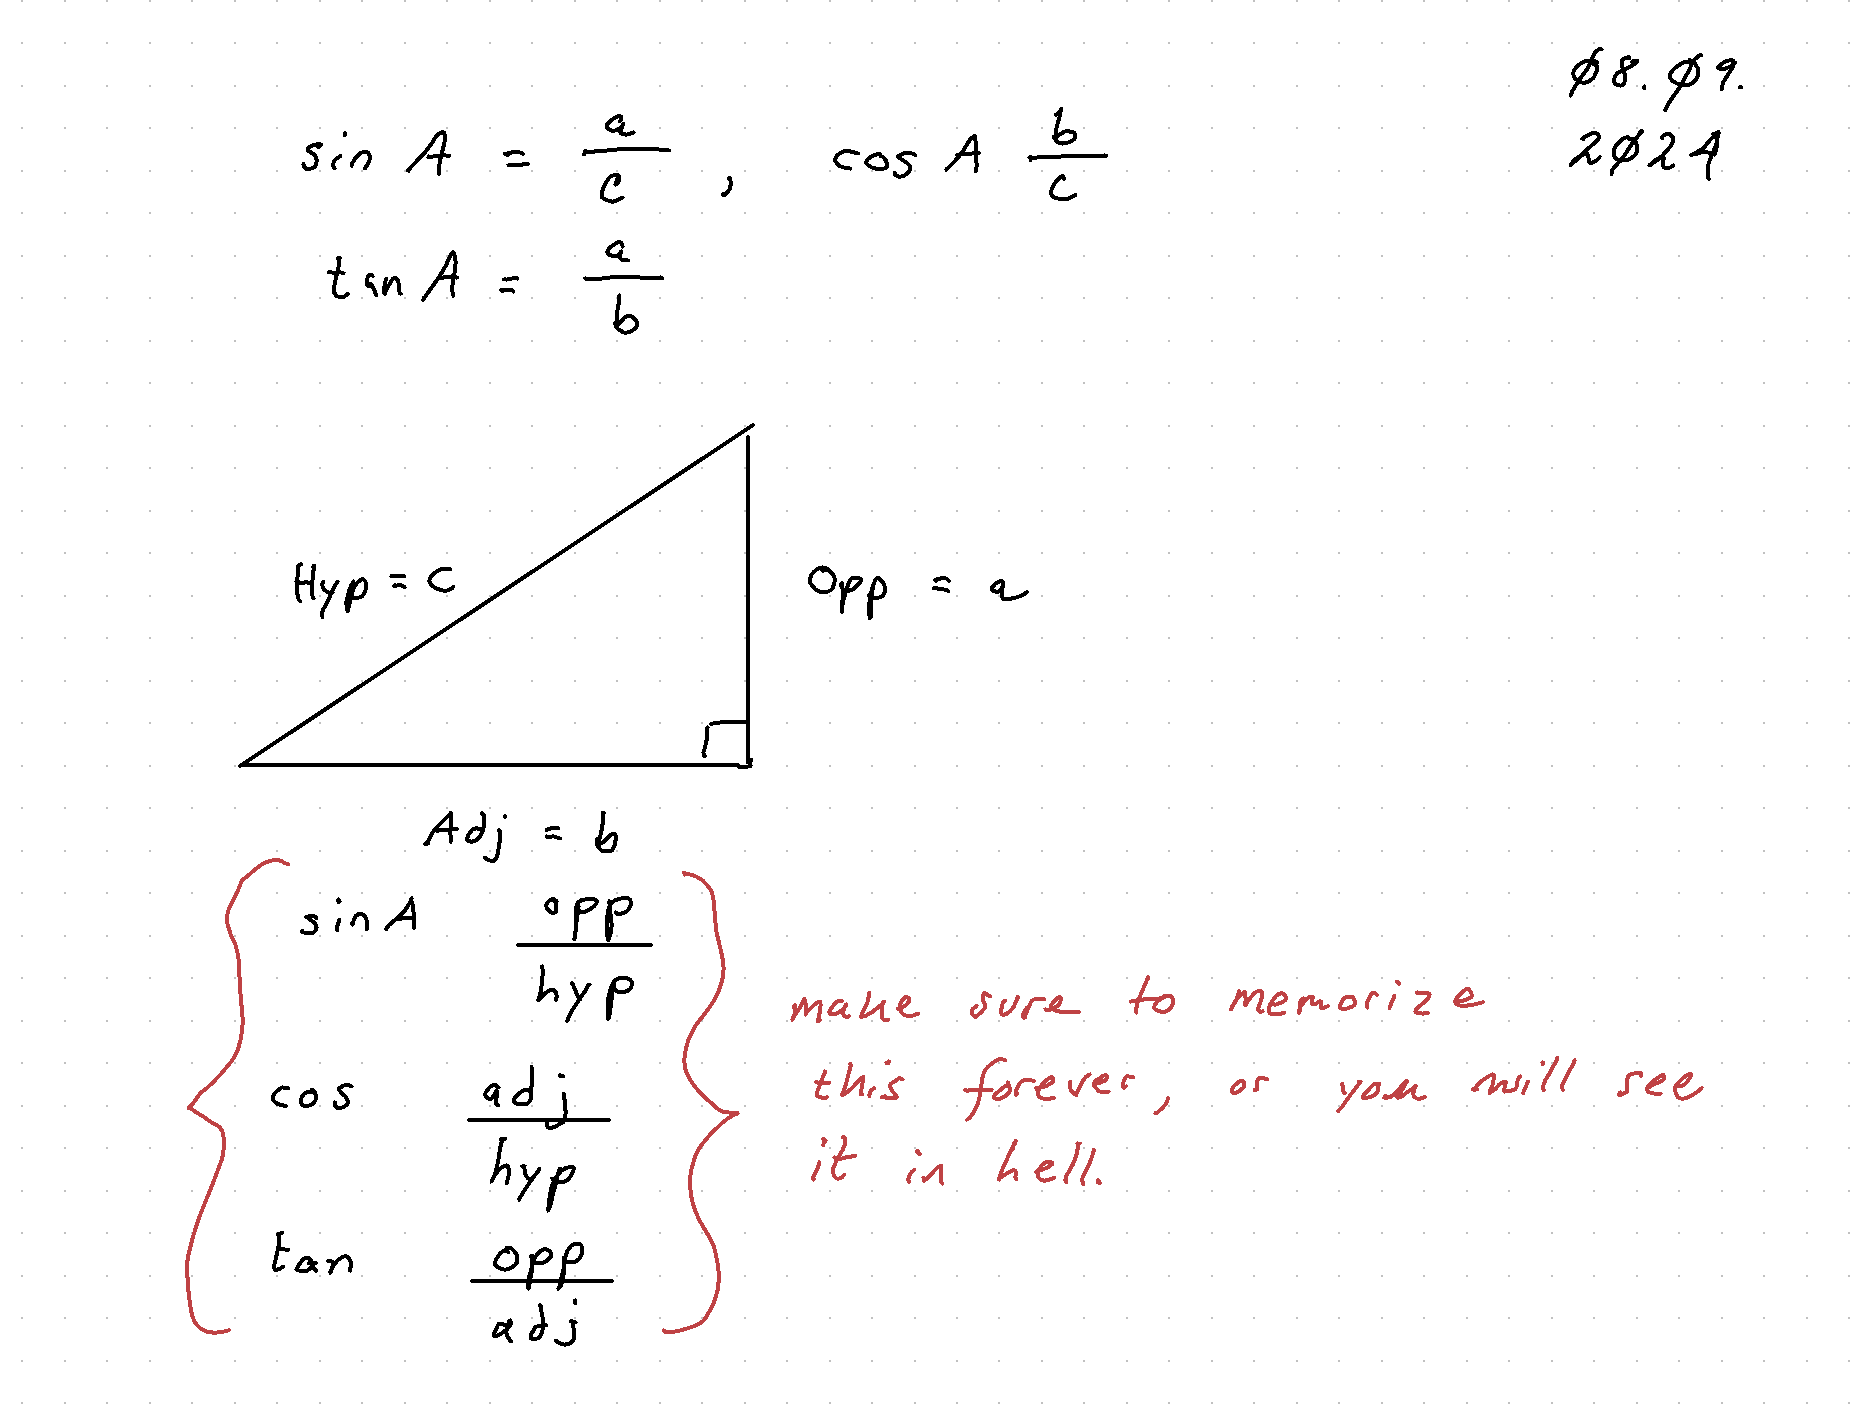 ø8. ø9.
2ø24
sin A = a/c , cos A b/c
tan A = a/b
Hyp = c
Opp = a
Adj = b
sin A opp/hyp
cos adj/hyp
tan opp/adj
make sure to memorize
this forever, or you will see
it in hell.